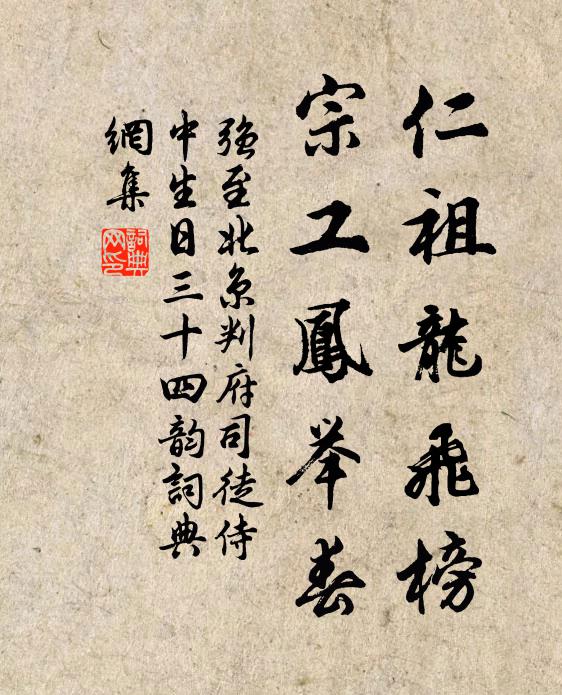 仁祖龍飛榜
宗工鳳举春
强至北京判府司徒侍
中生日三十四韵詞典
網集
詞典
网印